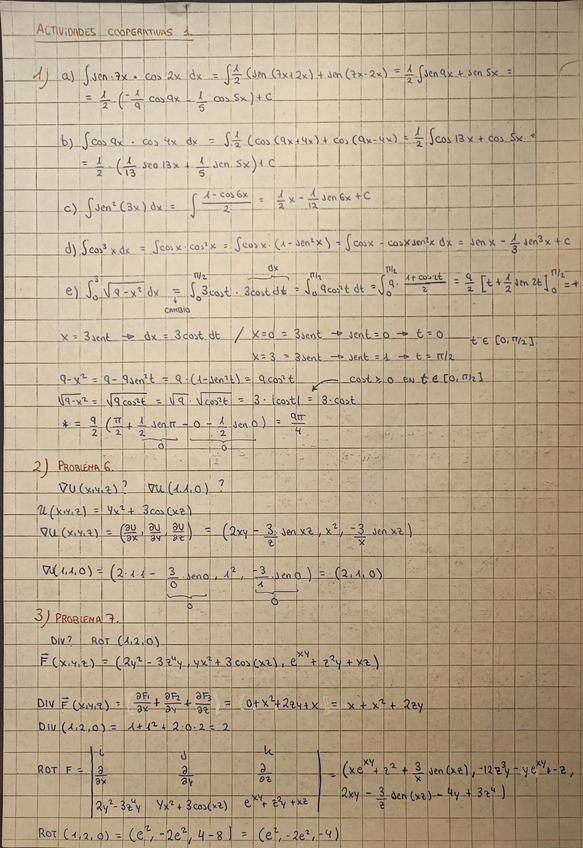 ACTIVIDADES COOPERATIVAS 1.
1) a) ∫sen 7x · cos 2x dx = ∫1/2 (sen (7x+2x) + sen (7x-2x) = 1/2 ∫sen 9x + sen 5x =
= 1/2 · (-1/9 cos 9x - 1/5 cos 5x) + C
b) ∫cos 9x · cos 4x dx = ∫1/2 (cos (9x+4x) + cos (9x-4x) = 1/2 ∫cos 13x + cos 5x =
= 1/2 · (1/13 sen 13x + 1/5 sen 5x) + C
c) ∫sen² (3x) dx = ∫ (1-cos 6x)/2 = 1/2 x - 1/12 sen 6x + C
d) ∫cos³ x dx = ∫cos x · cos² x = ∫cos x · (1-sen² x) = ∫cos x - cos x sen² x dx = sen x - 1/3 sen³ x + C
dx
e) ∫₀³ √9-x² dx = ∫₀^π/2 3cost · 3cost dt = ∫₀^π/2 9cos²t dt = ∫₀^π/2 9 · (1+cos2t)/2 = 9/2 [t + 1/2 sen 2t]₀^π/2 = *
CAMBIO
x = 3sent → dx = 3cost dt / x=0 = 3sent → sent = 0 → t = 0 t ∈ [0, π/2]
x=3 = 3sent → sent = 1 → t = π/2
9-x² = 9-9sen²t = 9·(1-sen²t) = 9cos²t cost ≥ 0 EN t ∈ [0, π/2]
√9-x² = √9cos²t = √9 · √cos²t = 3 · |cost| = 3·cost
* = 9/2 (π/2 + 1/2 sen π - 0 - 1/2 sen 0) = 9π/4
0 0
2) PROBLEMA 6.
∇U (x,y,z) ? ∇U (1,1,0) ?
U(x,y,z) = yx² + 3cos(xz)
∇U (x,y,z) = (∂U/∂x, ∂U/∂y, ∂U/∂z) = (2xy - 3/z sen xz, x², -3/x sen xz)
∇U(1,1,0) = (2·1·1 - 3/0 sen 0, 1², -3/1 sen 0) = (2,1,0)
0 0
3) PROBLEMA 7.
DIV? ROT (1,2,0)
F (x,y,z) = (2y² - 3z⁴y, yx² + 3 cos (xz), e^xy + z²y + xz)
DIV F (x,y,z) = ∂F₁/∂x + ∂F₂/∂y + ∂F₃/∂z = (0+x²+2zy+x) = x + x² + 2zy
DIV (1,2,0) = 1+1² + 2·0·2 = 2
i j k
ROT F = | ∂/∂x ∂/∂y ∂/∂z | = (xe^xy + z² + 3/x sen(xz), -12z³y - ye^xy + -z,
2y²-3z⁴y yx²+3cos(xz) e^xy + z²y + xz 2xy - 3/z sen (xz) - 4y + 3z⁴)
ROT (1,2,0) = (e², -2e², 4-8) = (e², -2e², -4)